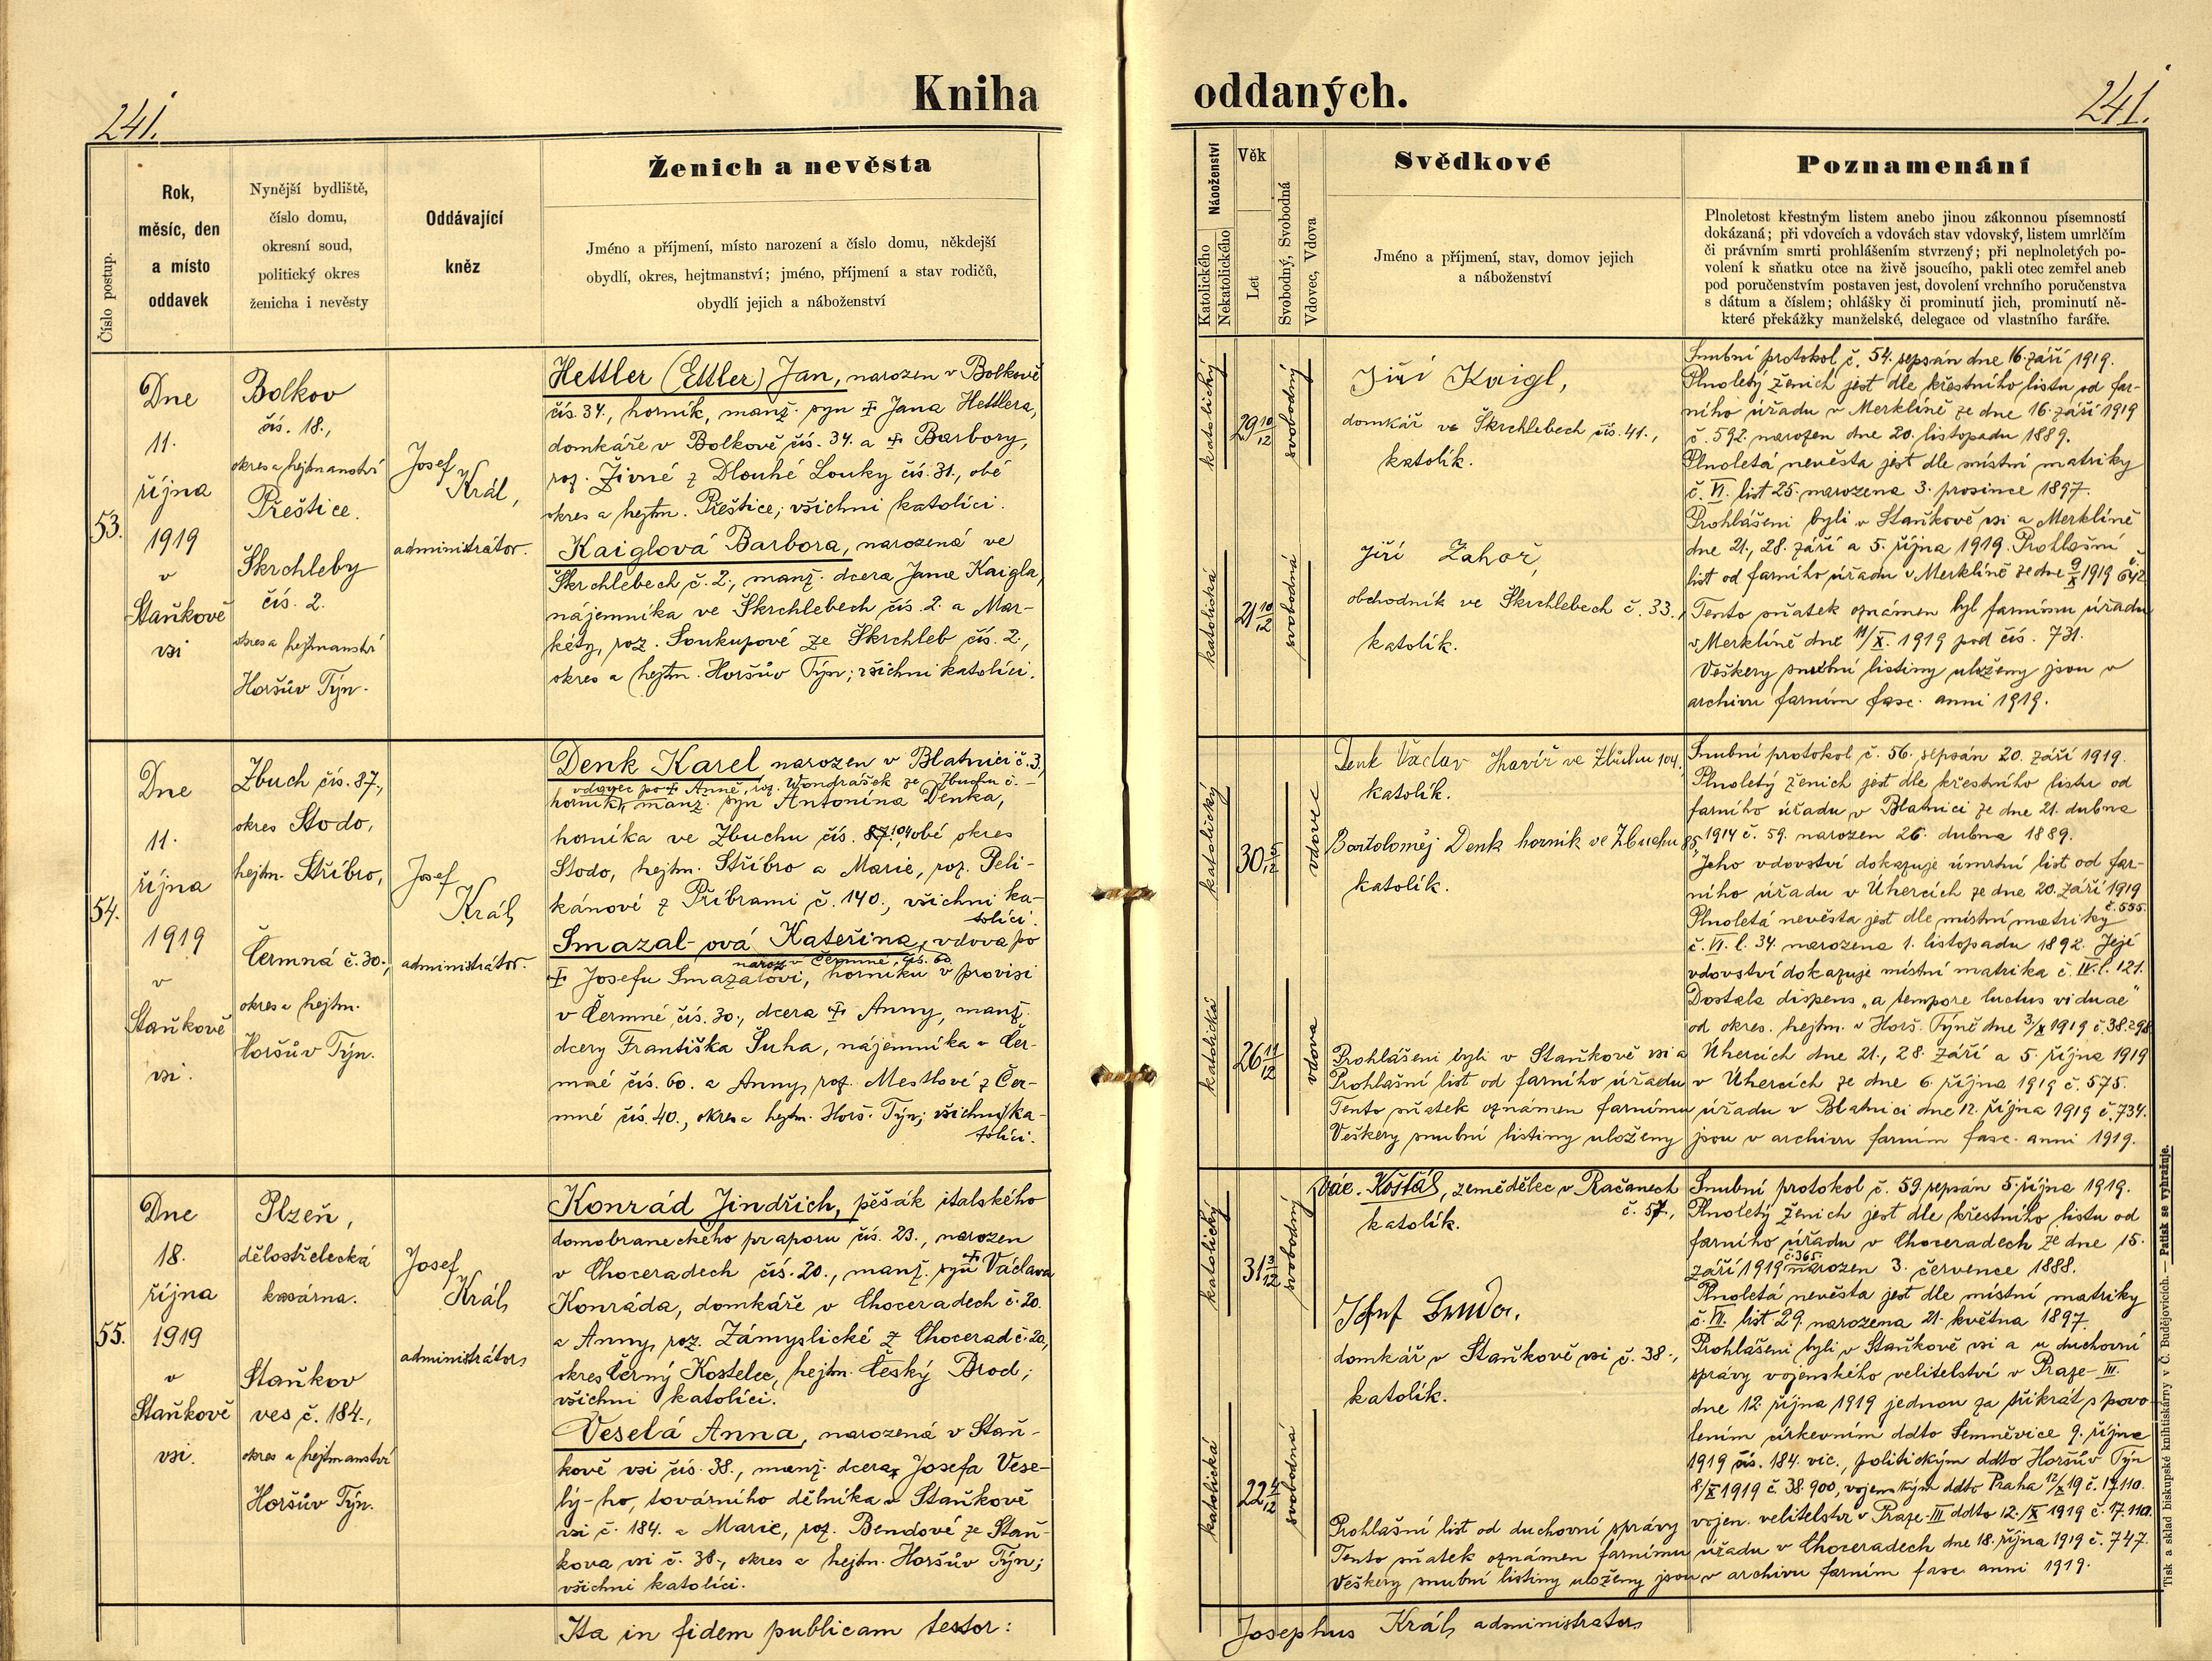 241.
Kniha
oddaných.
241.
Číslo postup.
Rok,
měsíc, den
a místo
oddavek
Nynější bydliště,
číslo domu,
okresní soud,
politický okres
ženicha i nevěsty
Oddávající
kněz
Ženich a nevěsta
Jméno a příjmení, místo narození a číslo domu, někdejší
obydlí, okres, hejtmanství; jméno, příjmení a stav rodičů,
obydlí jejich a náboženství
Náboženství
Katolického
Nekatolického
Věk
Let
Svobodný, Svobodná
Vdovec, Vdova
Svědkové
Jméno a příjmení, stav, domov jejich
a náboženství
Poznamenání
Plnoletost křestným listem anebo jinou zákonnou písemností
dokázaná; při vdovcích a vdovách stav vdovský, listem umrlčím
či právním smrti prohlášením stvrzený; při neplnoletých po-
volení k sňatku otce na živě jsoucího, pakli otec zemřel aneb
pod poručenstvím postaven jest, dovolení vrchního poručenstva
s dátum a číslem; ohlášky či prominutí jich, prominutí ně-
které překážky manželské, delegace od vlastního faráře.
53.
Dne
11.
října
1919
v
Staňkově
vsi
Bolkov
čís. 18.,
okres a hejtmanství
Přeštice.
Škrchleby
čís. 2.
okres a hejtmanství
Horšův Týn.
Josef
Král,
administrátor.
Hettler (Ettler) Jan, narozen v Bolkově
čís. 34., horník, manž. syn † Jana Hettlera,
domkáře v Bolkově čís. 34. a † Barbory,
roz. Živné z Dlouhé Louky čís. 31., obé
okres a hejtm. Přeštice; všichni katolíci.
Kaiglová Barbora, narozená ve
Škrchlebech č. 2., manž. dcera Jana Kaigla,
nájemníka ve Škrchlebech čís. 2. a Mar-
kéty, roz. Soukupové ze Škrchleb čís. 2.,
okres a hejtm. Horšův Týn; všichni katolíci.
katolický
29 10/12
svobodný
katolická
21 10/12
svobodná
Jiří Kaigl,
domkář ve Škrchlebech čís. 41.,
katolík.
Jiří Zahoř,
obchodník ve Škrchlebech č. 33.,
katolík.
Snubní protokol č. 54. sepsán dne 16. září 1919.
Plnoletý ženich jest dle křestního listu od far-
ního úřadu v Merklíně ze dne 16. září 1919
č. 592. narozen dne 20. listopadu 1889.
Plnoletá nevěsta jest dle místní matriky
č. VI. list 25. narozena 3. prosince 1897.
Prohlášeni byli v Staňkově vsi a Merklíně
dne 21., 28. září a 5. října 1919. Prohlašní
list od farního úřadu v Merklíně ze dne 9/X 1919 č. 642
Tento sňatek oznámen byl farnímu úřadu
v Merklíně dne 11/X. 1919 pod čís. 731.
Veškery snubní listiny uloženy jsou v
archivu farním fasc. anni 1919.
54.
Dne
11.
října
1919
v
Staňkově
vsi.
Zbuch čís. 87.,
okres Stodo,
hejtm. Stříbro,
Čermná č. 30.,
okres a hejtm.
Horšův Týn.
Josef
Král,
administrátor.
Denk Karel narozen v Blatnici č. 3,
vdovec po † Anně, roz. Wondrášek ze Zbuchu č. –
horník, manž. syn Antonína Denka,
horníka ve Zbuchu čís. 87. 104, obé okres
Stodo, hejtm. Stříbro a Marie, roz. Peli-
kánové z Příbrami č. 140., všichni ka-
tolíci.
Smazal-ová Kateřina, vdova po
naroz. v Čermné, čís. 60.
† Josefu Smazalovi, horníku v provisi
v Čermné čís. 30., dcera † Anny, manž.
dcery Františka Šuha, nájemníka v Čer-
mné čís. 60. a Anny, roz. Mestlové z Čer-
mné čís. 40., okres a hejtm. Horš. Týn; všichni ka-
tolíci.
katolický
30 5/12
vdovec
katolická
26 11/12
vdova
Denk Václav Havíř ve Zbuchu 104.,
katolík.
Bartoloměj Denk horník ve Zbuchu 85.,
katolík.
Snubní protokol č. 56. sepsán 20. září 1919.
Plnoletý ženich jest dle křestního listu od
farního úřadu v Blatnici ze dne 21. dubna
1914 č. 59. narozen 26. dubna 1889.
Jeho vdovství dokazuje úmrtní list od far-
ního úřadu v Úhercích ze dne 20. září 1919
č. 555.
Plnoletá nevěsta jest dle místní matriky
č. VI. l. 34. narozena 1. listopadu 1892. Její
vdovství dokazuje místní matrika č. IV. l. 121.
Dostala dispens „a tempore luctus viduae"
od okres. hejtm. v Horš. Týně dne 3./X 1919 č. 38.298
Prohlášeni byli v Staňkově vsi a Úhercích dne 21., 28. září a 5. října 1919
Prohlašní list od farního úřadu v Úhercích ze dne 6. října 1919 č. 575.
Tento sňatek oznámen farnímu úřadu v Blatnici dne 12. října 1919 č. 734.
Veškery snubní listiny uloženy jsou v archivu farním fasc. anni 1919.
55.
Dne
18.
října
1919
v
Staňkově
vsi.
Plzeň,
dělostřelecká
kasárna.
Staňkov
ves č. 184.,
okres a hejtmanství
Horšův Týn.
Josef
Král,
administrátor,
Konrád Jindřich, pěšák italského
domobraneckého praporu čís. 23., narozen
v Choceradech čís. 20., manž. syn † Václava
Konráda, domkáře v Choceradech č. 20.
a Anny, roz. Zámyslické z Chocerad č. 20,
okres Černý Kostelec, hejtm. Český Brod;
všichni katolíci.
Veselá Anna, narozená v Staň-
kově vsi čís. 38., manž. dcera Josefa Vese-
lý-ho, továrního dělníka v Staňkově
vsi č. 184. a Marie, roz. Bendové ze Staň-
kova vsi č. 38., okres a hejtm. Horšův Týn;
všichni katolíci.
katolický
31 3/12
svobodný
katolická
22
svobodná
Vác. Košťál, zemědělec v Račanech
č. 57.,
katolík.
Josef
domkář v Staňkově vsi č. 38.,
katolík.
Snubní protokol č. 59. sepsán 5. října 1919.
Plnoletý ženich jest dle křestního listu od
farního úřadu v Choceradech ze dne 15.
č. 365.
září 1919 narozen 3. července 1888.
Plnoletá nevěsta jest dle místní matriky
č. VI. list 29. narozena 21. května 1897.
Prohlášeni byli v Staňkově vsi a u duchovní
správy vojenského velitelství v Praze-III.
dne 12. října 1919 jednou za třikrát s povo-
lením církevním ddto Semněvice 9. října
1919 čís. 184. vic., politickým ddto Horšův Týn
8/X 1919 č. 38.900, vojenským ddto Praha 12/X 19 č. 17.110.
Prohlašní list od duchovní správy vojen. velitelstv. v Praze-III ddto 12./X 1919 č. 17.110.
Tento sňatek oznámen farnímu úřadu v Choceradech dne 18. října 1919 č. 747.
Veškery snubní listiny uloženy jsou v archivu farním fasc. anni 1919.
Ita in fidem publicam testor:
Josephus Král, administrator,
Tisk a sklad biskupské knihtiskárny v Č. Budějovicích. — Patisk se vyhražuje.